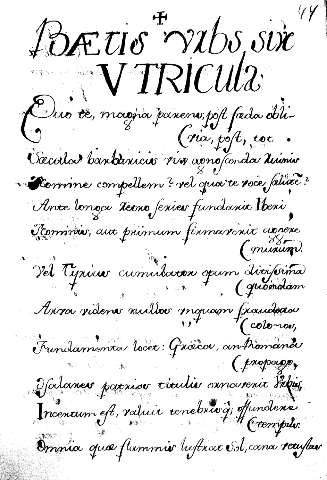 44
BÆTIS URBS SIVE
UTRICULA
Quo te, magna parens, post fæda obli-
(via, post, tot
Sæcula barbaricis vix agnoscenda ruinis
Nomine compellem? vel qua te voce salutẽ?
Ante longa retro series fundarit Iberi
Nominis, aut primum firmaverit aggere
(murum
Vel Tyrius cumulator opum ditissima
(quondam
Arva videns nullos unquam
(colonos,
Fundamenta locet: Græca, an Romana
(propago,
patrios titulis ornaverit
Incertum est, valuit tenebris q; offundere
(tempus
Omnia quæ flammis lustrat Sol, cana vetustas